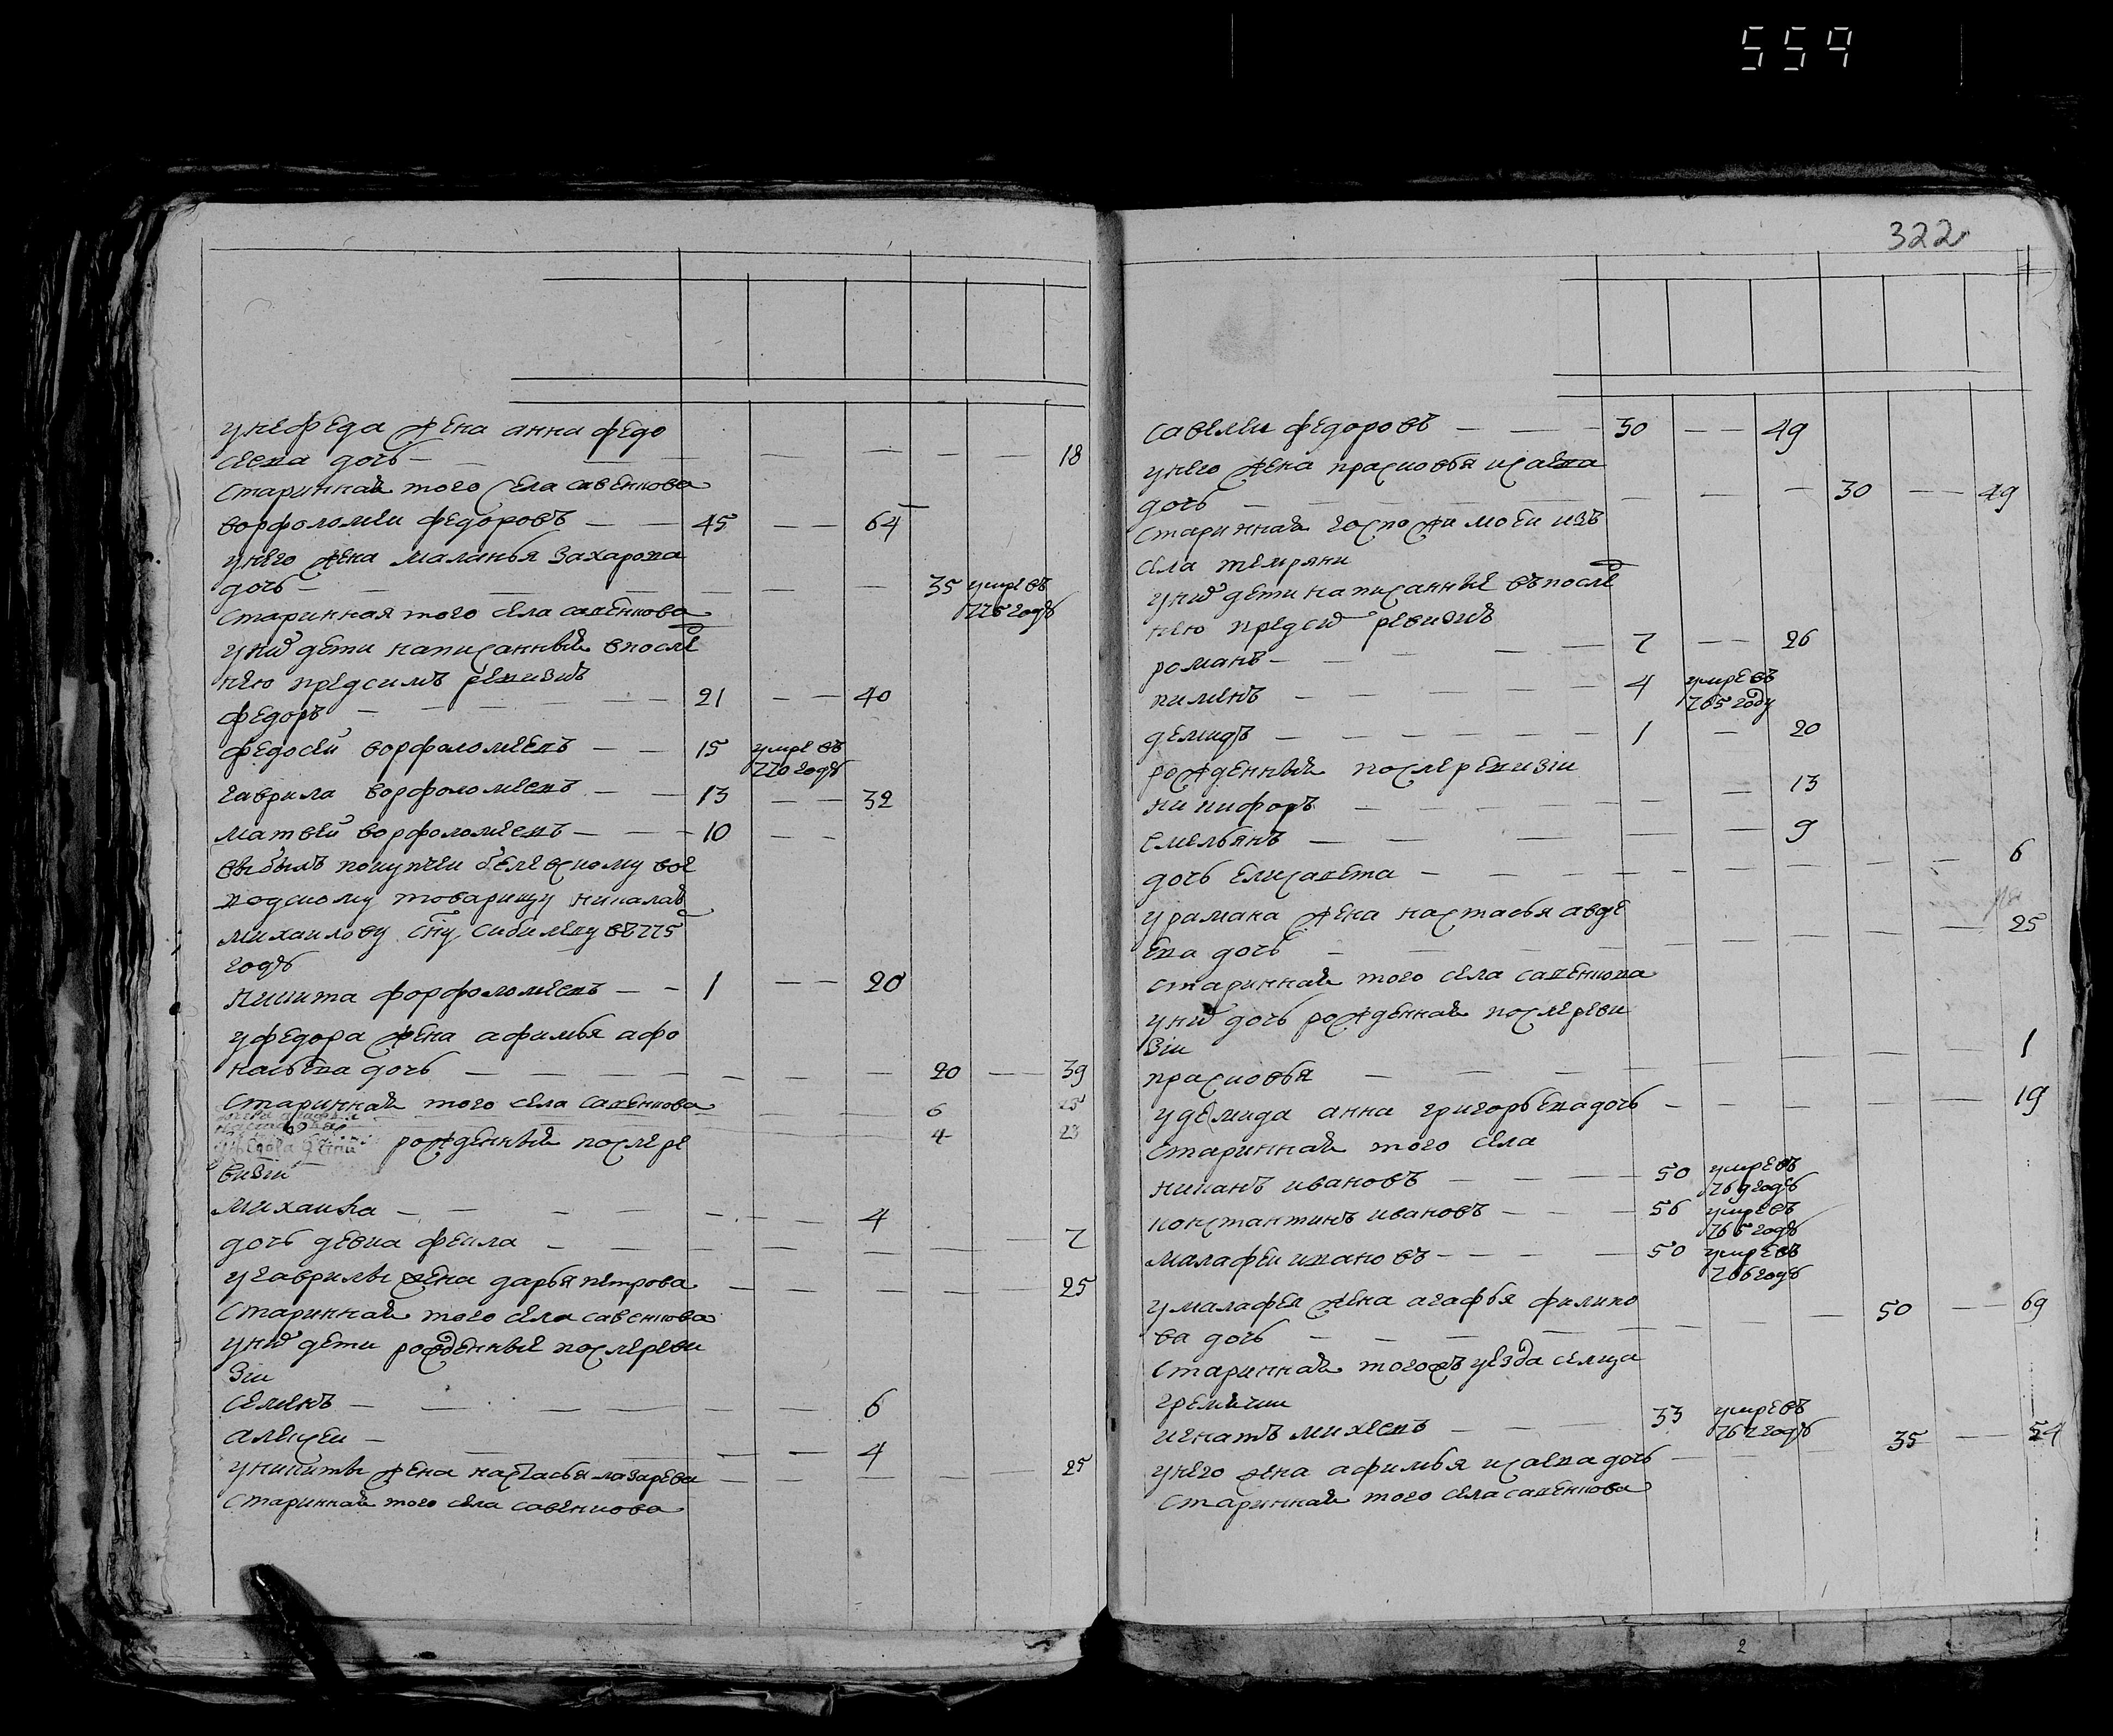 559
322
у нефеда жена анна федо
сеева дочь — — — — — — 18
старинная того села савенкова
ворфоломеи федоровъ — — 45 — — 64
у него жена маланья захарова
дочь — — — — 35 умре въ 775 годѣ
старинная того села савенкова
у них дети написанныя в после
нею пред симъ ревизиѣ
федоръ — — — 21 — — 40
федосеи ворфоломеевъ — — 15 умре въ 770 годѣ
гаврила ворфоломеевъ — — 13 — — 32
матвей ворфоломеевъ — — 10 — —
выбылъ по купчеи белевскому вое
водскому товарищу николаю
михаилову сну сибилеву въ 775
годѣ
никита форфоломеевъ — — 1 — — 20
у федора жена афимья афо
насьева дочь — — — — 20 — 39
старинная того села савенкова
6 25
4 23
рожденныя после ре
визии
михаила — — — — 4
дочь девка фекла — — — — 7
у гаврилы жена дарья петрова — — — — 25
старинная того села савенкова
у них дети рожденные после реви
зіи
семенъ — — — — 6
алексеи — — — — 4
у никиты жена настасья лазарева — — — — 25
старинная того села савенкова
савелеи федоровъ — — — 30 — — 49
у него жена прасковья исаева
дочь — — — — 30 — — 49
старинная госпожи моеи изъ
села темряни
у них дети написанные въ после
нею пред сим ревизиѣ
романъ — — — 7 — — 26
пименъ — — — 4 умре въ 765 году
демидъ — — — 1 — 20
рожденныя после ревизіи
никифоръ — — — — 13
емельянъ — — — — 9
дочь елисавета — — — — 6
у рамана жена настасья авде
ева дочь — — — — 25
старинная того села савенкова
у них дочь рожденная после реви
зіи
прасковья — — — — 1
у демида анна григорьева дочь — — — — 19
старинная того села
никанъ ивановъ — — — 50 умре въ 769 годѣ
константинъ ивановъ — — — 56 умре въ 765 годѣ
малафеи ивановъ — — — 50 умре въ 766 годѣ
у малафея жена агафья филипо
ва дочь — — — — 50 — 69
старинная того жъ уезда селца
гремячки
игнатъ михеевъ — — — 33 умре въ 767 годѣ
у него жена афимья исаева дочь — — 35 — 54
старинная того села савенкова
2